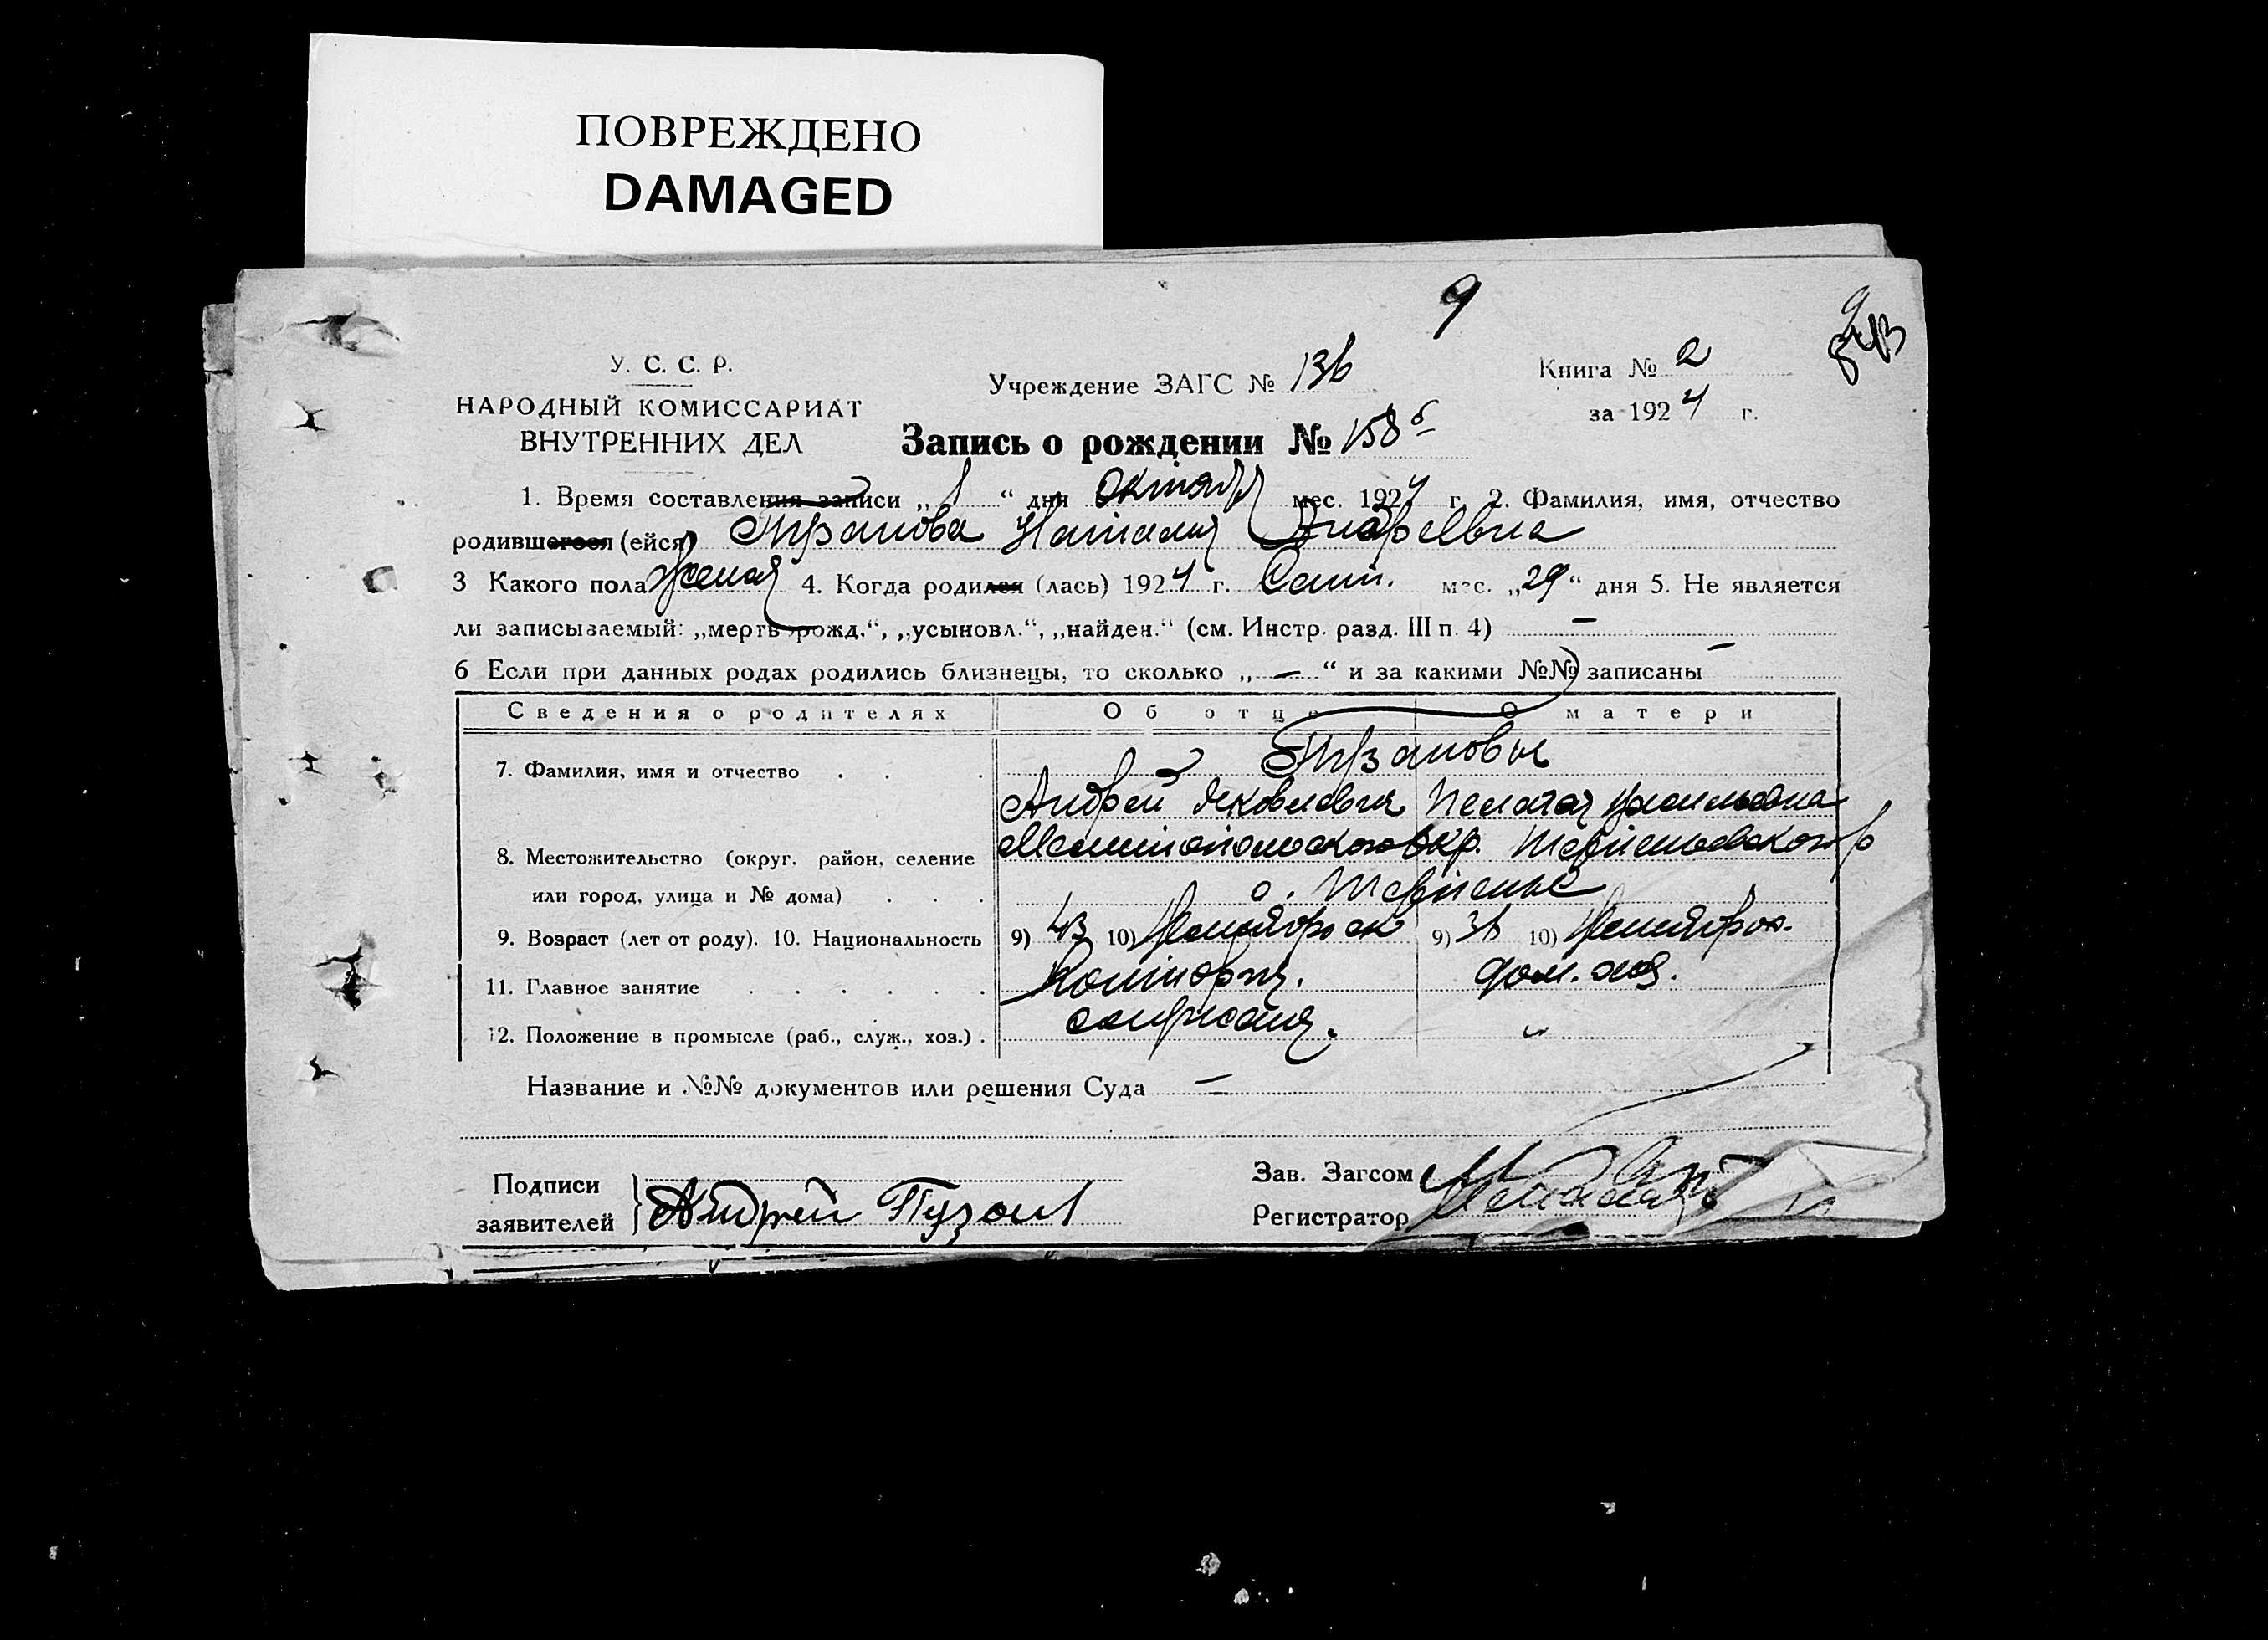 ПОВРЕЖДЕНО
DAMAGED
9
9
У. С. С. Р.
НАРОДНЫЙ КОМИССАРИАТ
ВНУТРЕННИХ ДЕЛ
Учреждение ЗАГС № 136
Книга № 2
за 1924 г.
Запись о рождении № 158 б
1. Время составления записи „1“ дня Октября мес. 1924 г. 2. Фамилия, имя, отчество
родившегося (ейся) Пузанова Наталия Андреевна
3 Какого пола женск 4. Когда родился (лась) 1924 г. Сент. мес. „29“ дня 5. Не является
ли записываемый: „мертворожд.“, „усыновл.“, „найден.“ (см. Инстр. разд. III п. 4) —
6 Если при данных родах родились близнецы, то сколько „—“ и за какими №№ записаны —
Сведения о родителях Об отце О матери
7. Фамилия, имя и отчество Пузановы
Андрей Яковлевич Пелагея
8. Местожительство (округ, район, селение Мелитопольского Окр. Терпеньевского р
или город, улица и № дома) с. Терпенье
9. Возраст (лет от роду). 10. Национальность 9) 43 10) 9) 36 10)
11. Главное занятие дом. хоз.
12. Положение в промысле (раб., служ., хоз.) . "
Название и №№ документов или решения Суда —
Подписи
заявителей Андрей Пузанов
Зав. Загсом
Регистратор